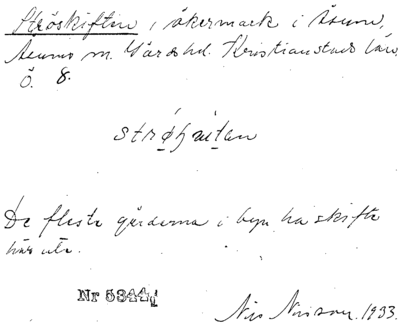 Ströskiften, i åkermark i Åsum,
Åsums sn. Gärds hd. Kristianstads län.
Ö. 8.
De flesta gårdarna i byn ha skifte
här ute.
Nr 5344
Nils Nilsson. 1933.